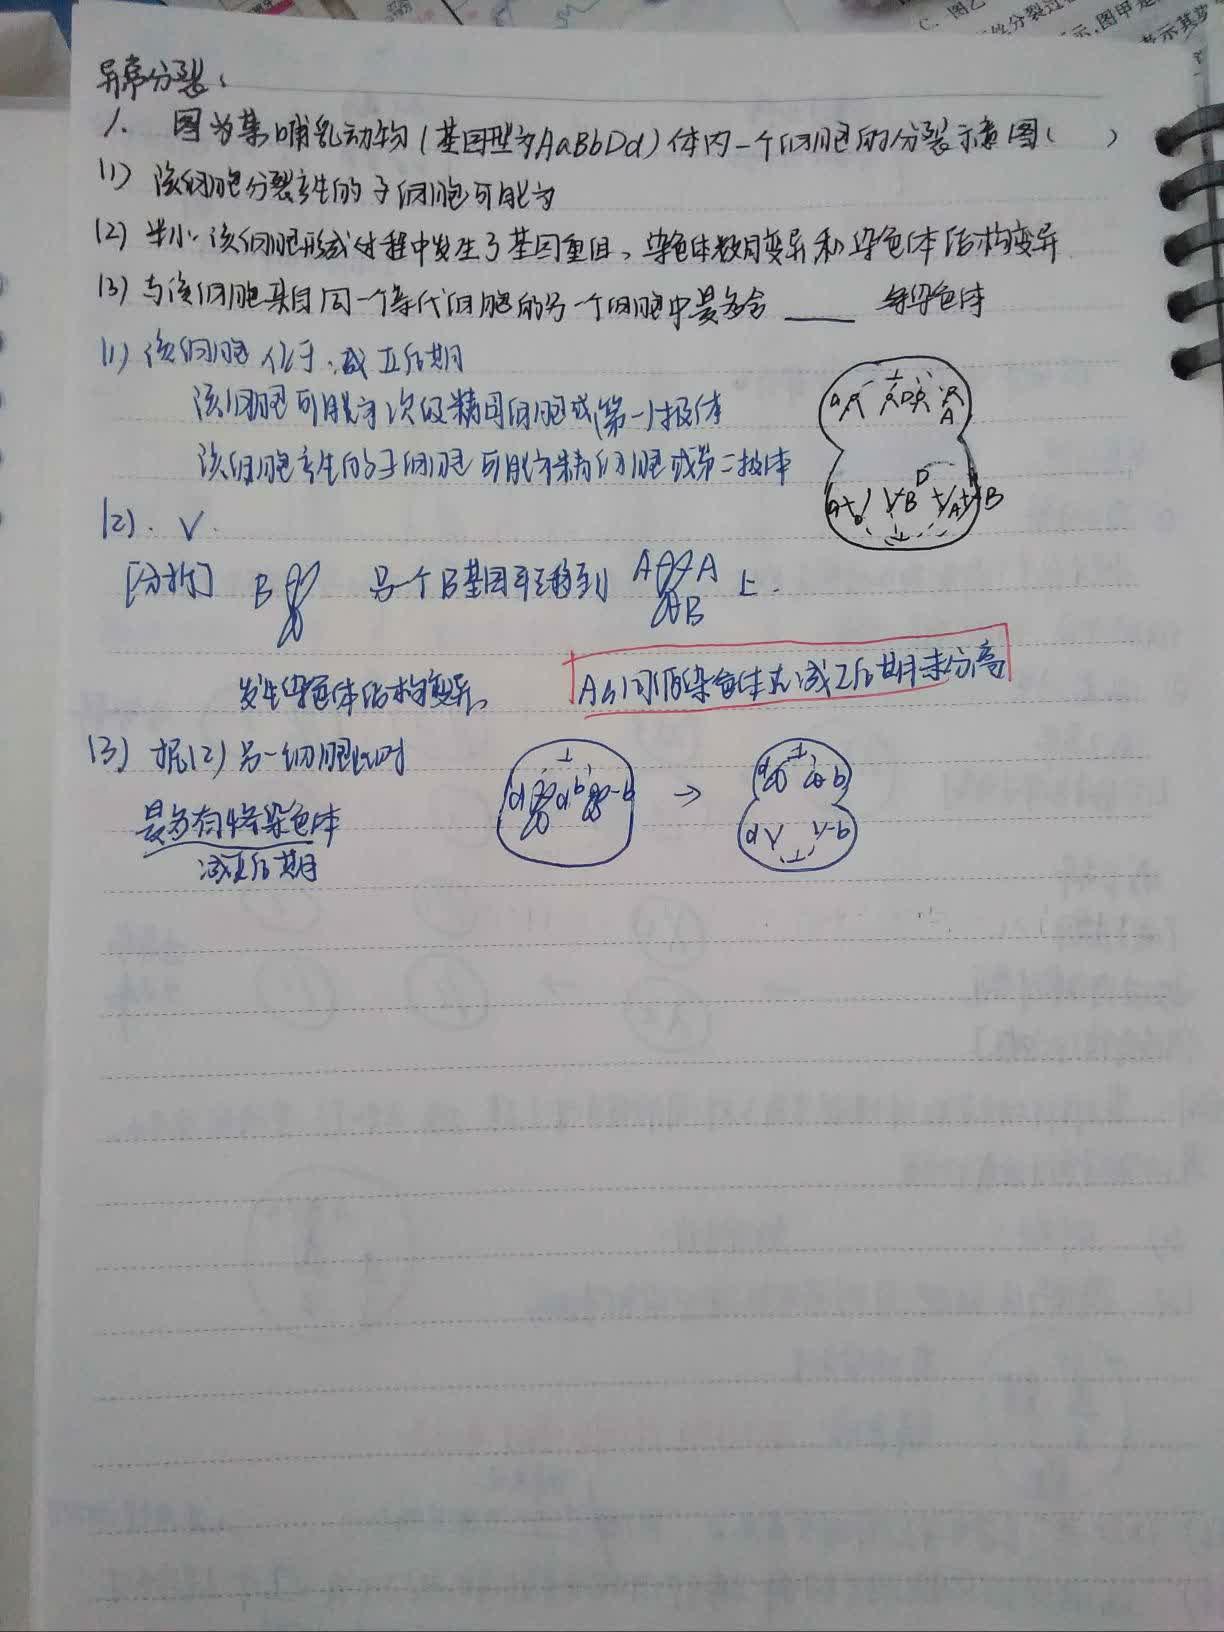 C. 图乙
丝分裂过
示,图甲是
表示其染
异常分裂:
1. 图为某哺乳动物(基因型为AaBbDd)体内一个细胞的分裂示意图( )
(1) 该细胞分裂产生的子细胞可能为
(2) 判断:该细胞形成过程中发生了基因重组、染色体数目变异和染色体结构变异
(3) 与该细胞来自同一个亲代细胞的另一个细胞中最多含 ____ 条染色体
(1) 该细胞位于减Ⅱ后期
该细胞可能为次级精母细胞或第一极体
该细胞产生的子细胞可能为精细胞或第二极体
a D A
a b B D A B
(2). √.
[分析] B 另一个B基因平移到 A A B 上.
发生染色体结构变异。
A的同源染色体在减Ⅰ后期未分离
(3) 据(2)另一细胞此时
最多有4条染色体
减Ⅱ后期
d d b b → d b
d b